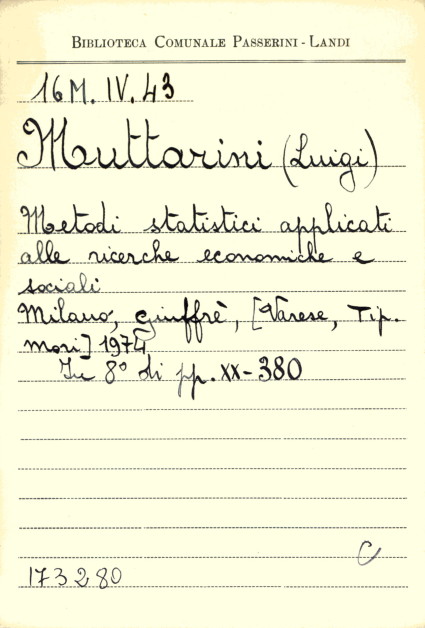 BIBLIOTECA COMUNALE PASSERINI - LANDI
16M. IV. 43
Muttarini (Luigi)
Metodi statistici applicati
alle ricerche economiche e
sociali
Milano, Giuffrè, [Varese, Tip.
Mori] 1974
In 8° di pp. XX-380
C
173280